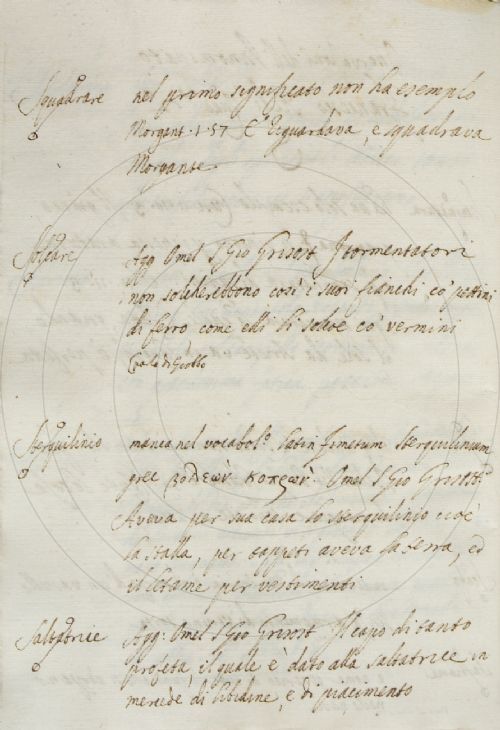 Squadrare nel primo significato non ha esempio
Morgant. 1. 57 E riguardava, e squadrava
Morgante.
Solcare Agg Omel S Gio Grisost I tormentatori
non solcherebbono così i suoi fianchi co' pettini
di ferro come elli si solve co' vermini
Sterquilinio manca nel vocabol.º latin fimetum sterquilinium
grec βολεών κοπρών. Omel S Gio Grisost:
Aveva per sua casa lo sterquilinio cioè
la stalla, per tappeti aveva la terra, ed
il letame per vestimenti
Saltatrice Agg: Omel S Gio Grisost Il capo di tanto
profeta, il quale è dato alla saltatrice in
mercede di libidine, e di piacimento